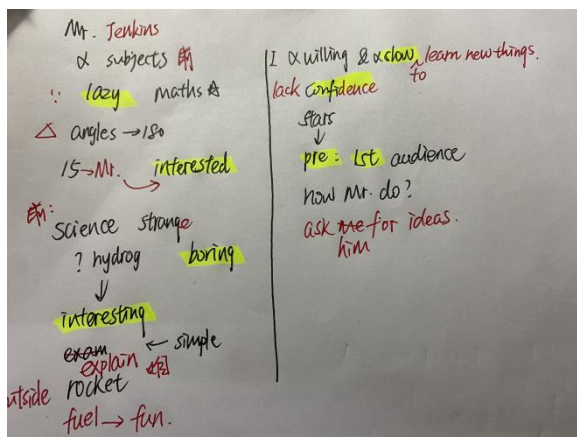 Mr. Jenkins
α subjects 前
∵ lazy maths ☆
△ angles → 180
15 → Mr. interested
前:
science strange
? hydrog boring
↓
interesting
exam ← simple
explain
outside rocket
fuel → fun.
I α willing & α slow to learn new things.
lack confidence
stars
↓
pre: 1st audience
how Mr. do?
ask me for ideas.
him